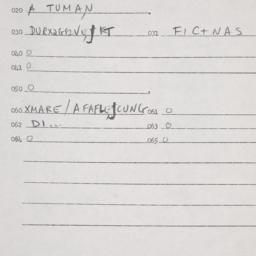 020 A TUMAN
030 032 FICTNAS
040 0
041 0
050 0
060 XMARE/AFAFLEJCUNG 061 0
062 DI... 063 0
064 0 065 0